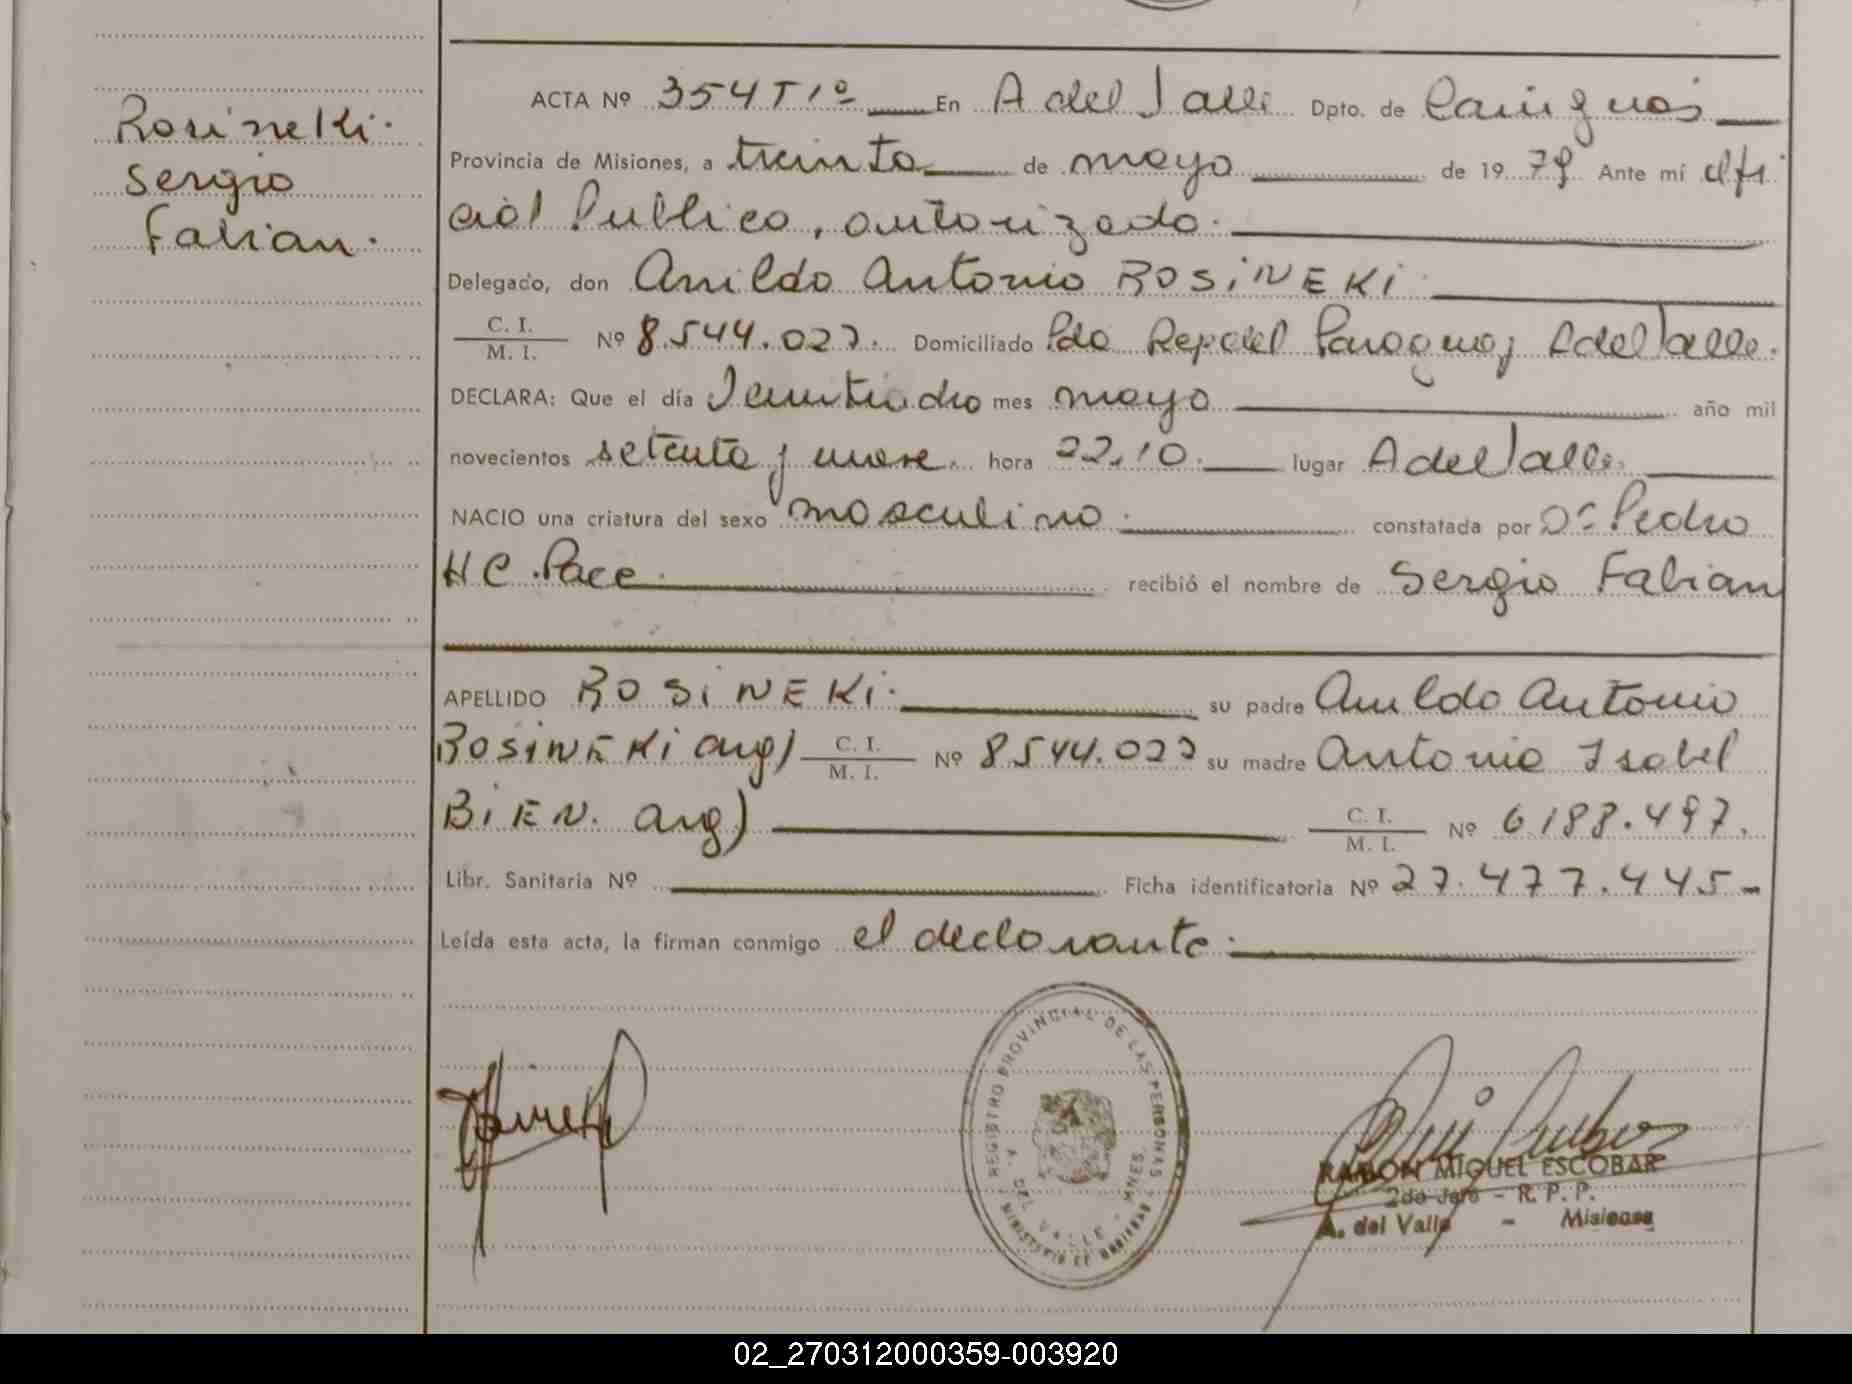 Rosineki.
Sergio
Fabian.
ACTA Nº 354 T 1º En A del Valle Dpto. de Cainguas
Provincia de Misiones, a treinta de mayo de 1979 Ante mí Ofi
cial Publico, autorizado.
Delegado, don Anildo Antonio ROSiNEKi.
C. I.
M. I. Nº 8.544.027. Domiciliado Pdo Rep del Paraguay A del Valle.
DECLARA: Que el día mes mayo año mil
novecientos setenta y nueve. hora 22,10. lugar A del Valle.
NACIO una criatura del sexo masculino. constatada por Dr. Pedro
H C. Pace. recibió el nombre de Sergio Fabian
APELLIDO ROSiNEKi. su padre Anildo Antonio
ROSiNEKi arg) C. I.
M. I. Nº 8.544.027 su madre Antonia Isabel
BiEN. arg) C. I.
M. I. Nº 6.188.497.
Libr. Sanitaria Nº Ficha identificatoria Nº 27.477.445-
Leída esta acta, la firman conmigo el declarante.
REGISTRO PROVINCIAL DE LAS PERSONAS
A. DEL VALLE - MNES.
MINISTERIO DE GOBIERNO
RAMON MIGUEL ESCOBAR
2do Jefe - R. P. P.
A. del Valle - Misiones
02_270312000359-003920